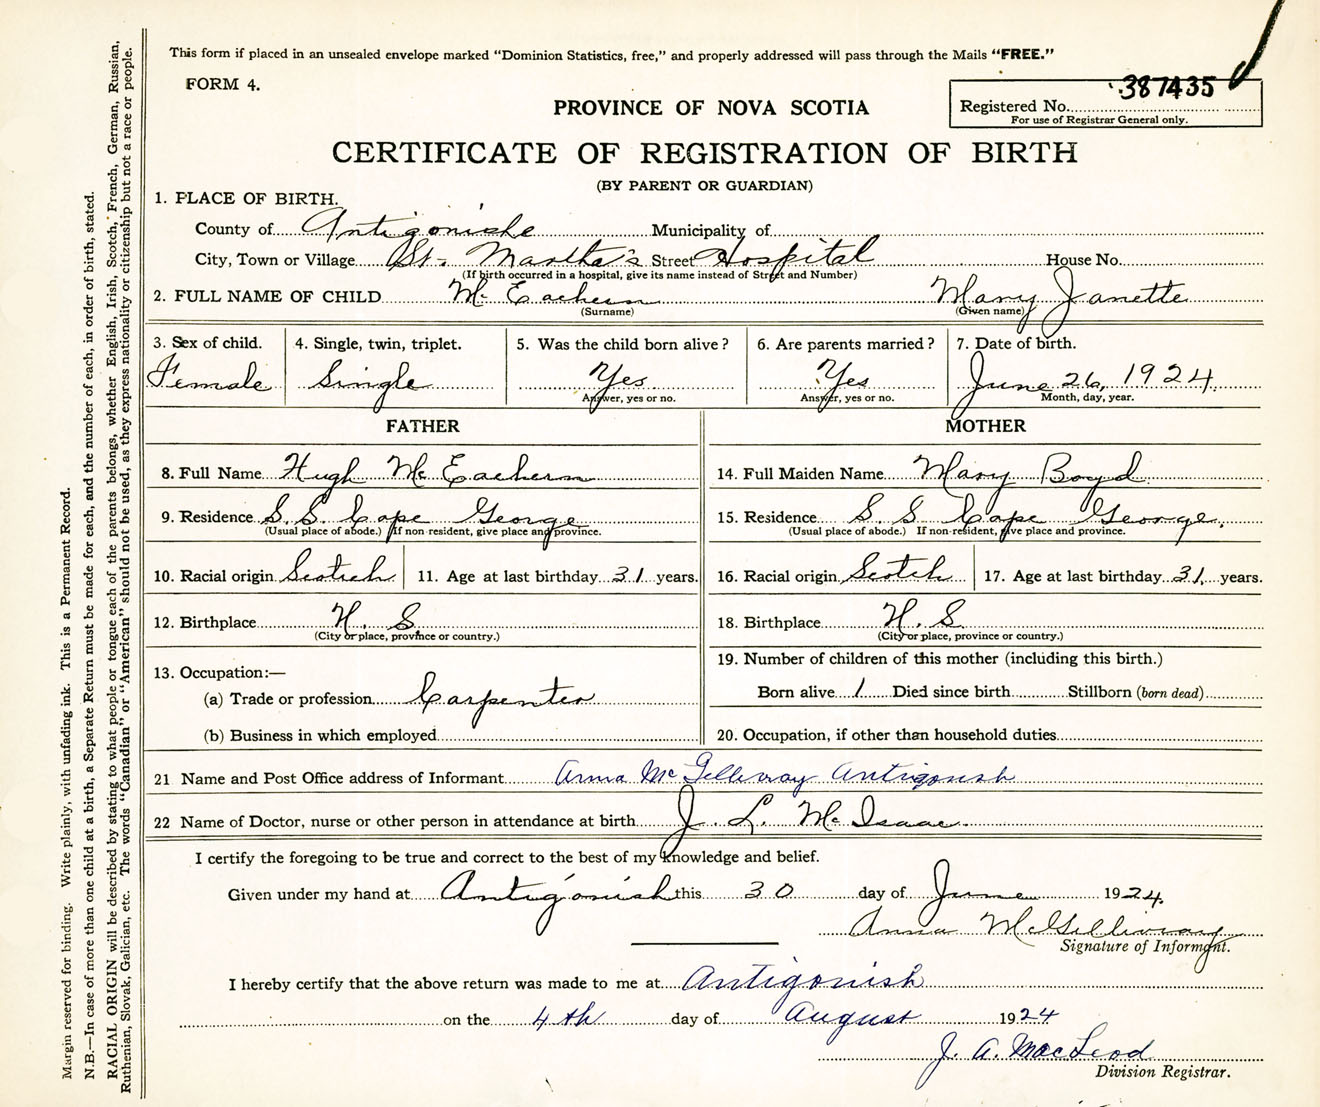 This form if placed in an unsealed envelope marked "Dominion Statistics, free," and properly addressed will pass through the Mails "FREE."
FORM 4.
387435
Registered No.
For use of Registrar General only.
PROVINCE OF NOVA SCOTIA
CERTIFICATE OF REGISTRATION OF BIRTH
(BY PARENT OR GUARDIAN)
1. PLACE OF BIRTH.
County of Antigonishe Municipality of
City, Town or Village St. Martha's Street Hospital House No.
(If birth occurred in a hospital, give its name instead of Street and Number)
2. FULL NAME OF CHILD Mc Eachern Mary Janette
(Surname) (Given name)
3. Sex of child. 4. Single, twin, triplet. 5. Was the child born alive? 6. Are parents married? 7. Date of birth.
Female Single Yes Yes June 26, 1924
Answer, yes or no. Answer, yes or no. Month, day, year.
FATHER MOTHER
8. Full Name Hugh Mc Eachern 14. Full Maiden Name Mary Boyd
9. Residence S.S. Cape George 15. Residence S S Cape George.
(Usual place of abode.) If non-resident, give place and province. (Usual place of abode.) If non-resident, give place and province.
10. Racial origin Scotch 11. Age at last birthday 31 years. 16. Racial origin Scotch 17. Age at last birthday 31 years.
12. Birthplace N. S. 18. Birthplace N. S
(City or place, province or country.) (City or place, province or country.)
13. Occupation:— 19. Number of children of this mother (including this birth.)
(a) Trade or profession Carpenter Born alive 1 Died since birth Stillborn (born dead)
(b) Business in which employed 20. Occupation, if other than household duties
21 Name and Post Office address of Informant Anna McGillivray Antigonish
22 Name of Doctor, nurse or other person in attendance at birth J. L. McIsaac.
I certify the foregoing to be true and correct to the best of my knowledge and belief.
Given under my hand at Antigonish this 30 day of June 1924.
Anna McGillivray
Signature of Informant.
I hereby certify that the above return was made to me at Antigonish
on the 4th day of August 1924
J. A. MacLeod
Division Registrar.
Margin reserved for binding. Write plainly, with unfading ink. This is a Permanent Record.
N.B.—In case of more than one child at a birth, a Separate Return must be made for each, and the number of each, in order of birth, stated.
RACIAL ORIGIN will be described by stating to what people or tongue each of the parents belongs, whether English, Irish, Scotch, French, German, Russian,
Ruthenian, Slovak, Galician, etc. The words "Canadian" or "American" should not be used, as they express nationality or citizenship but not a race or people.